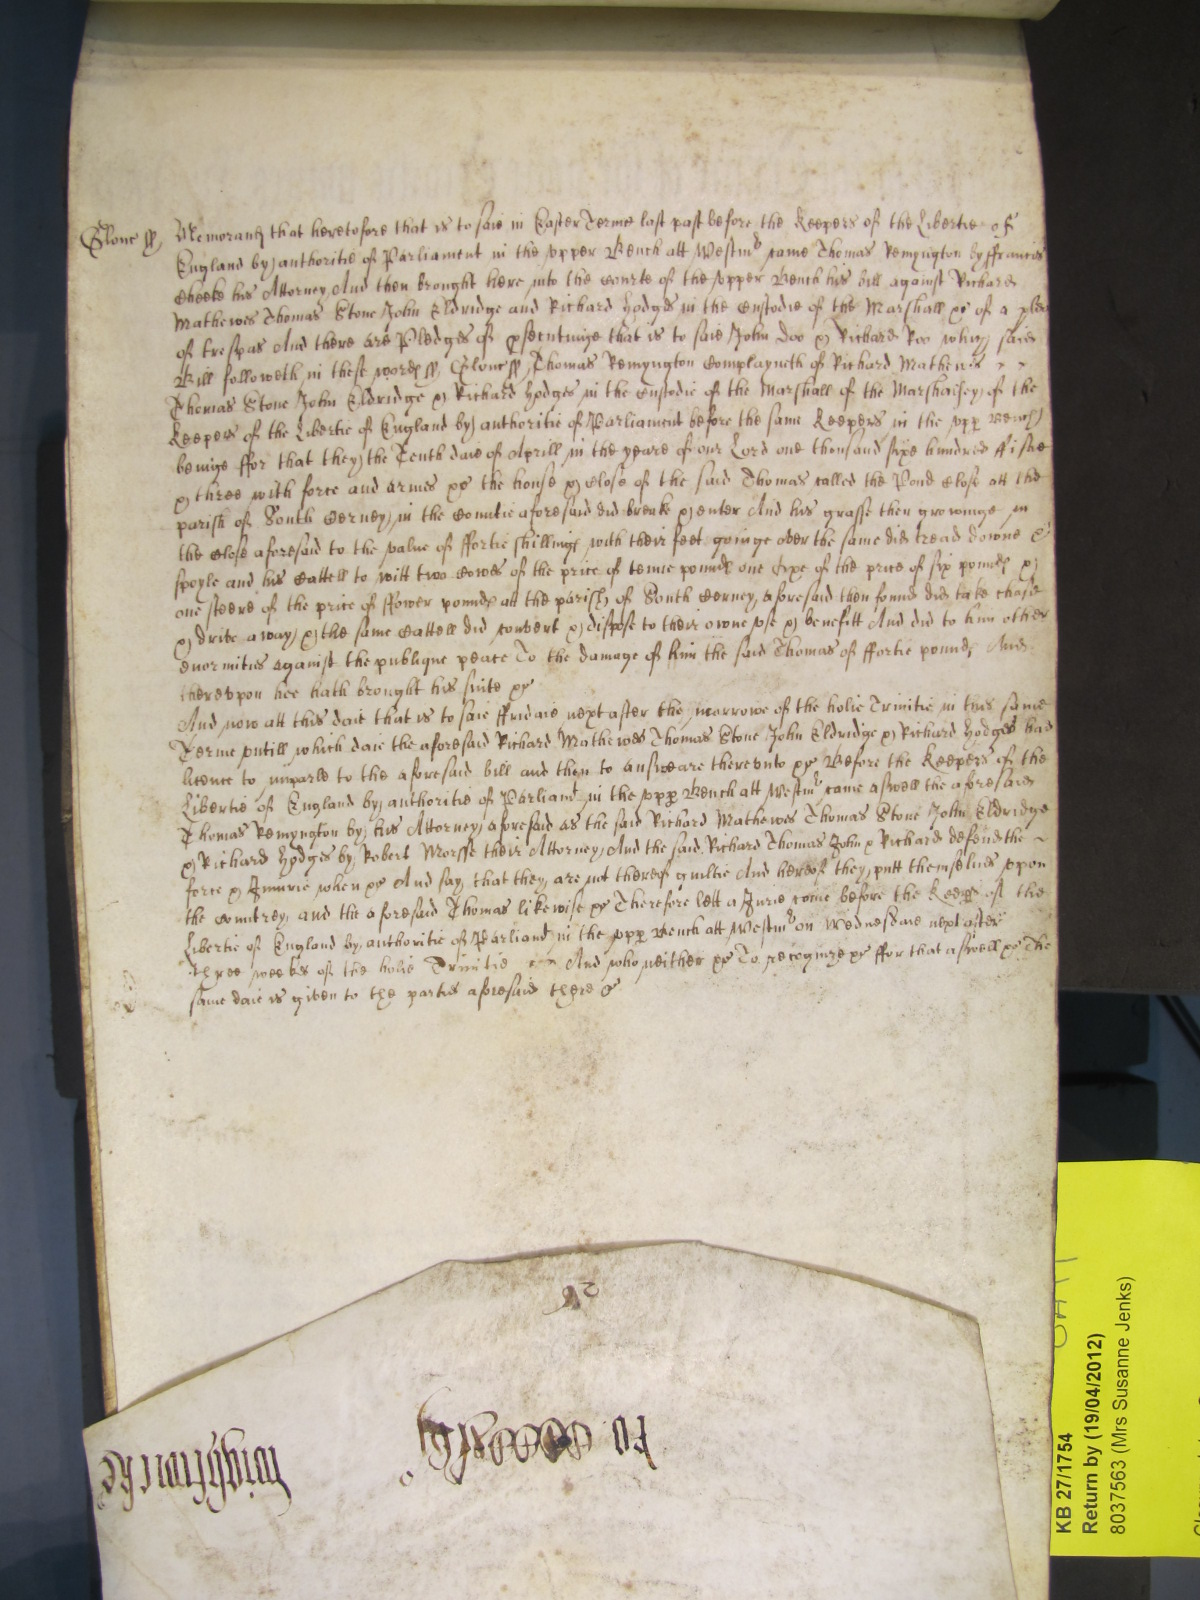 Glouc ss Memorand that heretofore that is to saie in Easter Terme last past before the Keepers of the Libertie of
England by authoritie of Parliament in the upper Bench att Westmr came Thomas Remyngton by ffrancis
Cheeke his Attorney And then brought here into the Courte of the upper Bench his bill against Richard
Mathewes Thomas Stone John Eldridge and Richard Hodges in the Custodie of the Marshall &c of a plea
of trespas And there are Pledges of psecutinge that is to saie John Doo & Richard Roo which said
Bill followeth in these words ss Glouc ss Thomas Remyngton Complayneth of Richard Mathewes
Thomas Stone John Eldridge & Richard Hodges in the Custodie of the Marshall of the Marshalsey of the
Keepers of the Libertie of England by authoritie of Parliament before the same Keepers in the upp Bench
beinge ffor that they the Tenth daie of Aprill in the yeare of our Lord one thousand sixe hundred ffiftie
& three with force and armes &c the house & Close of the said Thomas called the Pond Close att the
parish of South Cerney in the Countie aforesaid did breake & enter And his grasse then growinge in
the Close aforesaid to the value of ffortie shillings with their feet goinge over the same did tread downe &
spoyle and his Cattell to witt two Cowes of the price of tenne pounds one Oxe of the price of six pounds &
one steere of the price of ffower pounds att the parish of South Cerney aforesaid then found did take chase
& drive away & the same Cattell did convert & dispose to their owne use & benefitt And did to him other
enormities against the publique peace To the damage of him the said Thomas of ffortie pounds And
thereupon hee hath brought his suite &c
And now att this daie that is to saie ffridaie next after the morrowe of the holie Trinitie in this same
Terme untill which daie the aforesaid Richard Mathewes Thomas Stone John Eldridge & Richard Hodges had
licence to imparle to the aforesaid bill and then to answeare thereunto &c Before the Keepers of the
Libertie of England by authoritie of Parliamt in the upp Bench att Westmr came aswell the aforesaid
Thomas Remyngton by his Attorney aforesaid as the said Richard Mathewes Thomas Stone John Eldridge
& Richard Hodges by Robert Morsse their Attorney And the said Richard Thomas John & Richard defend the
force & Iniurie when &c And say that they are not thereof guiltie And hereof they putt themselves uppon
the Countrey and the aforesaid Thomas likewise &c Therefore lett a Jurie come before the Keeps of the
Libertie of England by authoritie of Parliamt in the upp Bench att Westmr on Wednesdaie next after
three weeks of the holie Trinitie And who neither &c To recognize &c ffor that aswell &c The
same daie is given to the parties aforesaid there &c
KB 27/1754
Return by (19/04/2012)
8037563 (Mrs Susanne Jenks)